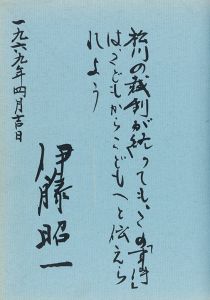 松川の裁判が終っても、この「事件」
はこどもからこどもへと伝えら
れよう
一九六九年四月吉日
伊藤昭一